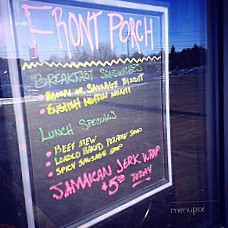 FRONT PORCH
BREAKFAST SANDWICHES
• BACON OR SAUSAGE BISCUIT
• ENGLISH MUFFIN
LUNCH SPECIALS
• BEEF STEW
• LOADED BAKED POTATO SOUP
• SPICY SAUSAGE SOUP
JAMAICAN JERK WRAP
$5 TODAY
menupix